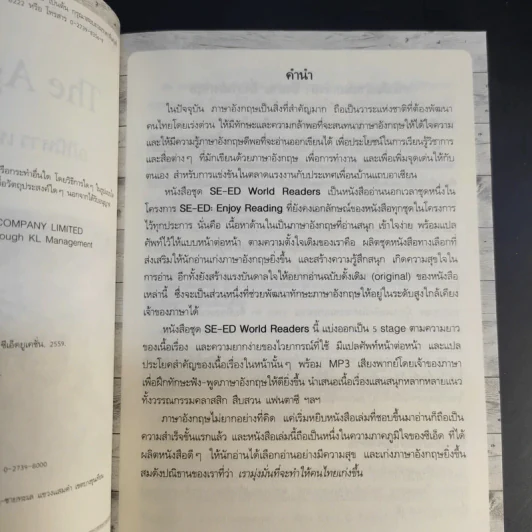 0222 หรือ โทรสาร 0-2739-8609
The A
COMPANY LIMITED
rough KL Management
ซีเอ็ดยูเคชั่น, 2559.
0-2739-8000
คำนำ
ในปัจจุบัน ภาษาอังกฤษเป็นสิ่งที่สำคัญมาก ถือเป็นวาระแห่งชาติที่ต้องพัฒนา
คนไทยโดยเร่งด่วน ให้มีทักษะและความกล้าพอที่จะสนทนาภาษาอังกฤษให้ได้ใจความ
และให้มีความรู้ภาษาอังกฤษดีพอที่จะอ่านออกเขียนได้ เพื่อประโยชน์ในการเรียนรู้วิชาการ
และสื่อต่างๆ ที่มักเขียนด้วยภาษาอังกฤษ เพื่อการทำงาน และเพื่อเพิ่มจุดเด่นให้กับ
ตนเอง สำหรับการแข่งขันในตลาดแรงงานกับประเทศเพื่อนบ้านแถบอาเซียน
หนังสือชุด SE-ED World Readers เป็นหนังสืออ่านนอกเวลาชุดหนึ่งใน
โครงการ SE-ED: Enjoy Reading ที่ยังคงเอกลักษณ์ของหนังสือทุกชุดในโครงการ
ไว้ทุกประการ นั่นคือ เนื้อหาด้านในเป็นภาษาอังกฤษที่อ่านสนุก เข้าใจง่าย พร้อมแปล
ศัพท์ไว้ให้แบบหน้าต่อหน้า ตามความตั้งใจเดิมของเราคือ ผลิตชุดหนังสือทางเลือกที่
ส่งเสริมให้นักอ่านเก่งภาษาอังกฤษยิ่งขึ้น และสร้างความรู้สึกสนุก เกิดความสุขใจใน
การอ่าน อีกทั้งยังสร้างแรงบันดาลใจให้อยากอ่านฉบับดั้งเดิม (original) ของหนังสือ
เหล่านี้ ซึ่งจะเป็นส่วนหนึ่งที่ช่วยพัฒนาทักษะภาษาอังกฤษให้อยู่ในระดับสูงใกล้เคียง
เจ้าของภาษาได้
หนังสือชุด SE-ED World Readers นี้ แบ่งออกเป็น 5 stage ตามความยาว
ของเนื้อเรื่อง และความยากง่ายของไวยากรณ์ที่ใช้ มีแปลศัพท์หน้าต่อหน้า และแปล
ประโยคสำคัญของเนื้อเรื่องในหน้านั้นๆ พร้อม MP3 เสียงพากย์โดยเจ้าของภาษา
เพื่อฝึกทักษะฟัง-พูดภาษาอังกฤษให้ดียิ่งขึ้น นำเสนอเนื้อเรื่องแสนสนุกหลากหลายแนว
ทั้งวรรณกรรมคลาสสิก สืบสวน แฟนตาซี ฯลฯ
ภาษาอังกฤษไม่ยากอย่างที่คิด แค่เริ่มหยิบหนังสือเล่มที่ชอบขึ้นมาอ่านก็ถือเป็น
ความสำเร็จขั้นแรกแล้ว และหนังสือเล่มนี้ถือเป็นหนึ่งในความภาคภูมิใจของซีเอ็ด ที่ได้
ผลิตหนังสือดีๆ ให้นักอ่านได้เลือกอ่านอย่างมีความสุข และเก่งภาษาอังกฤษยิ่งขึ้น
สมดังปณิธานของเราที่ว่า เรามุ่งมั่นที่จะทำให้คนไทยเก่งขึ้น